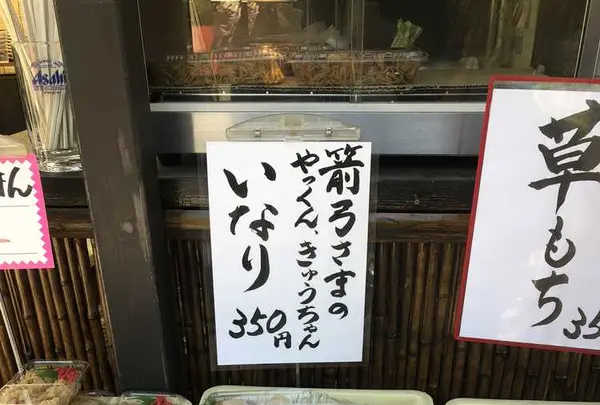 箭弓さまの
やっくん、きゅうちゃん
いなり
350円
草もち
35
Asahi
ん